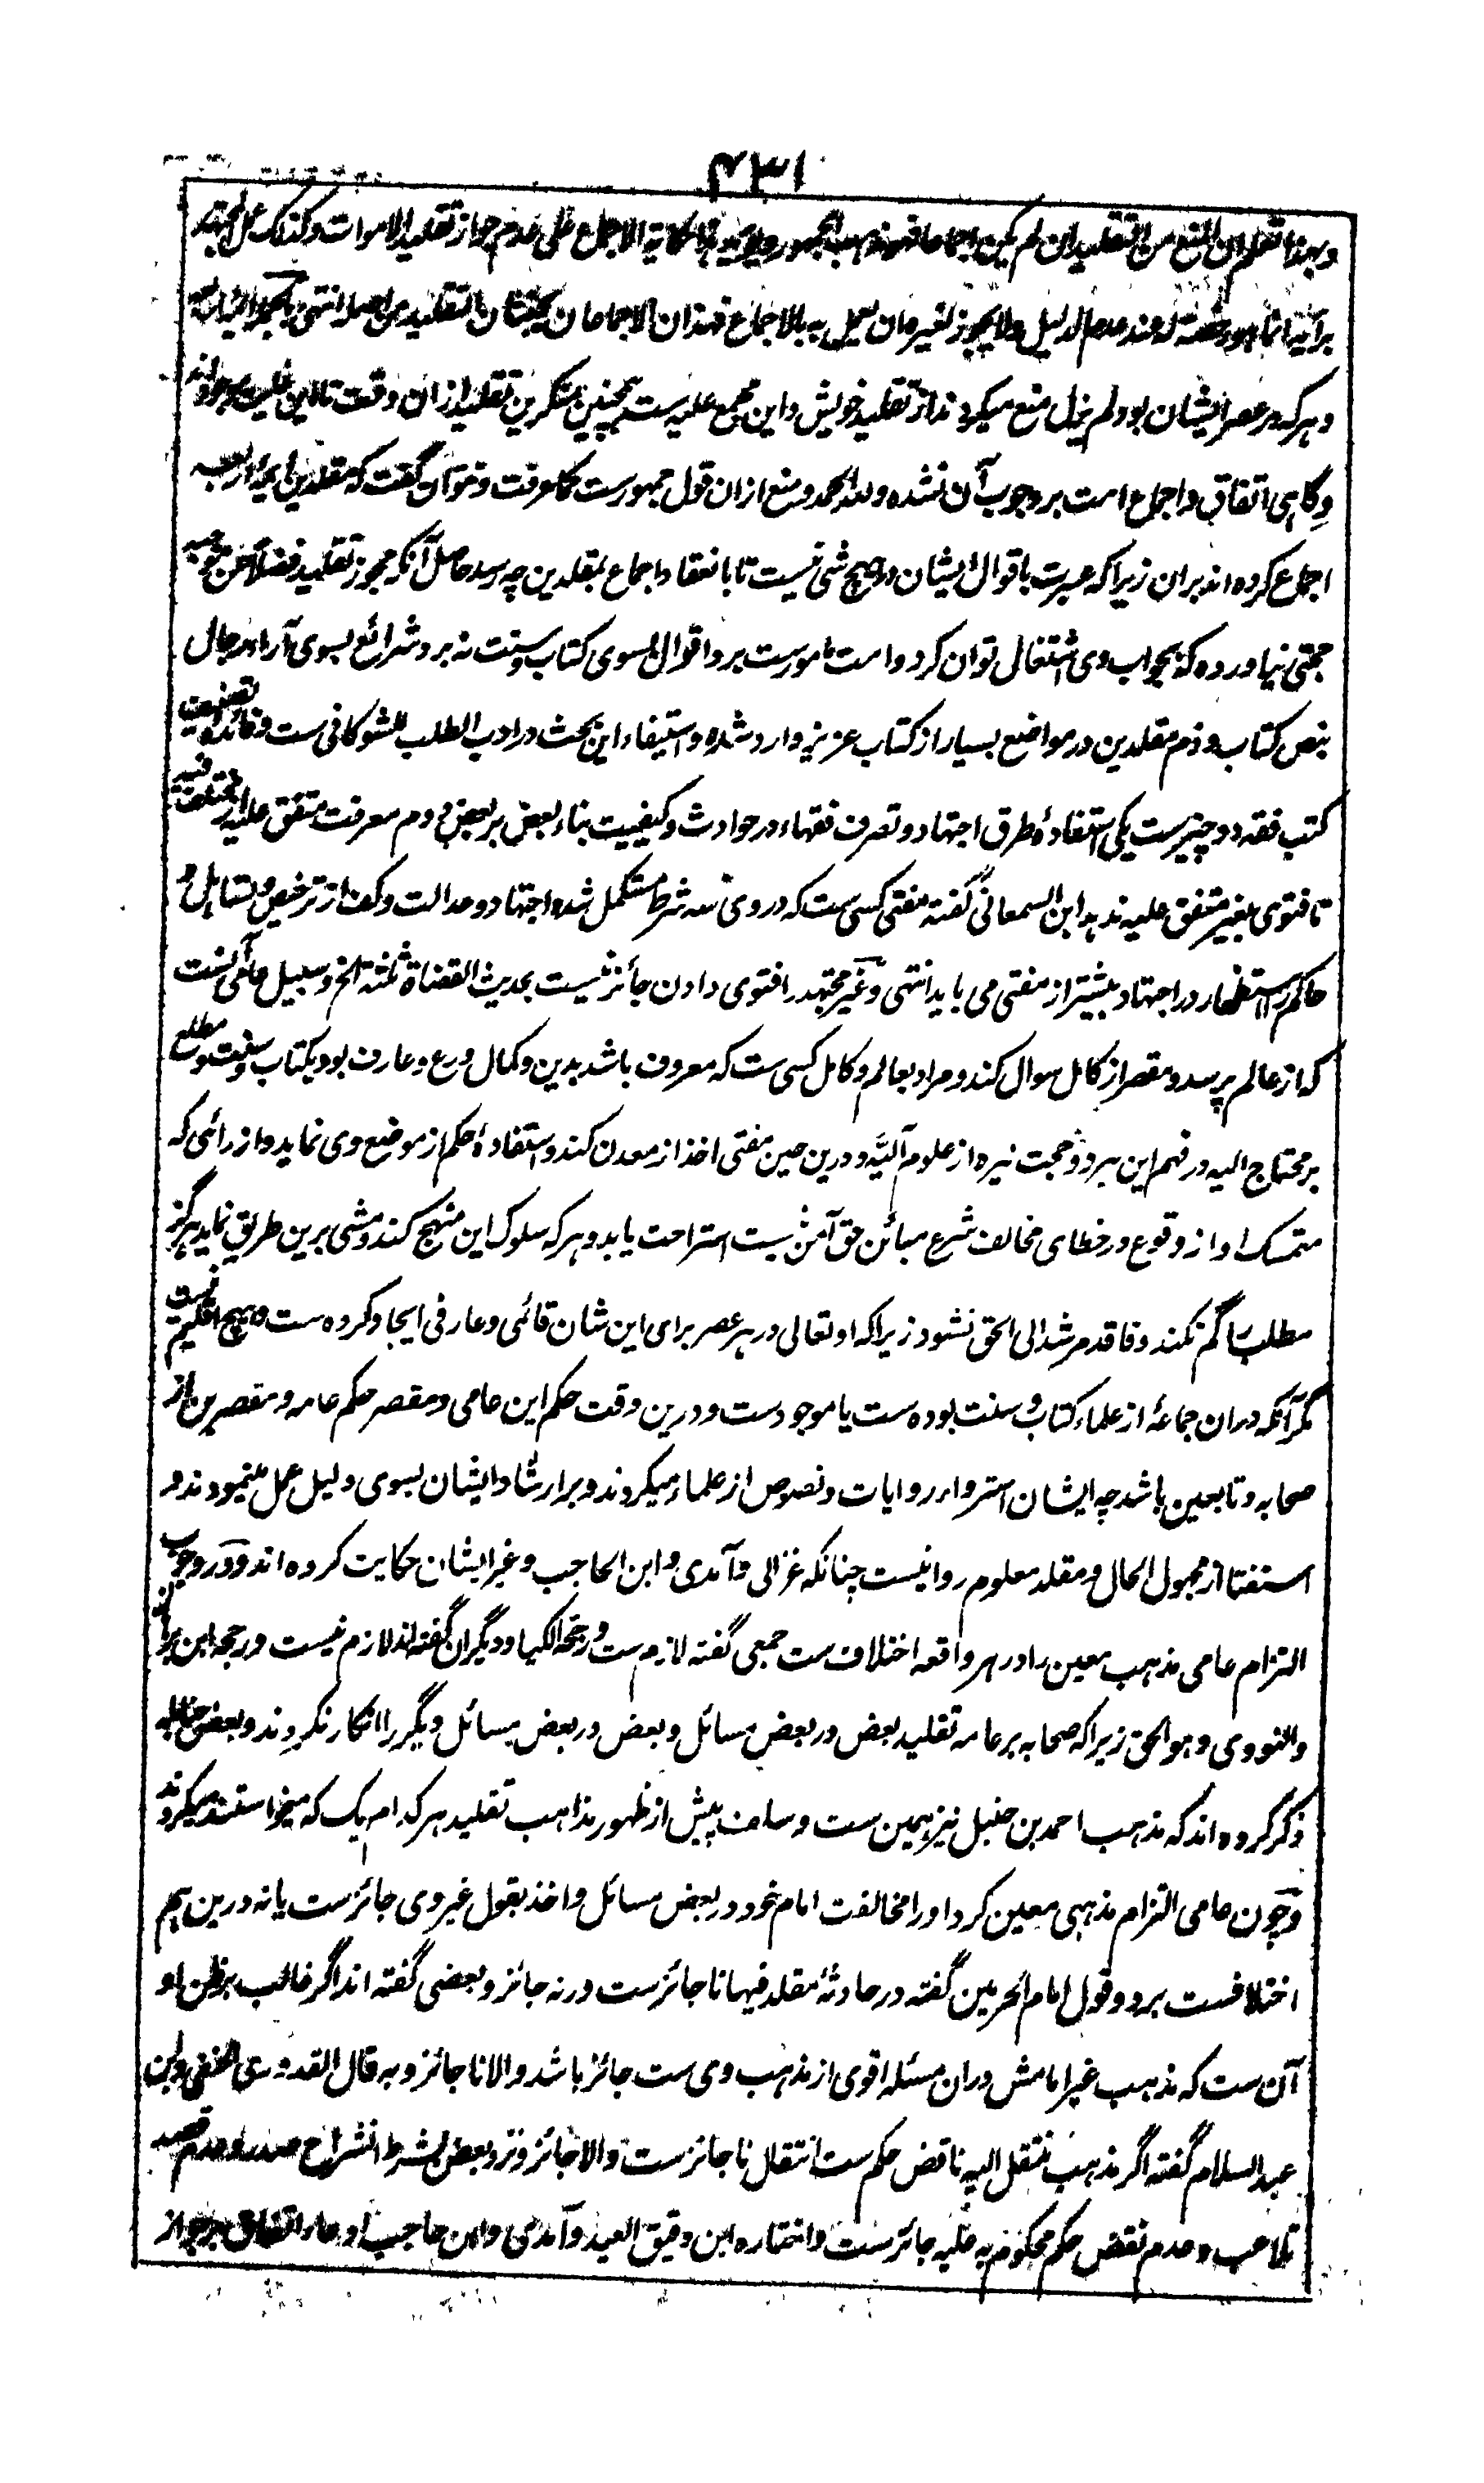 ۴۳۱
وبهذا تعلم ان المنع من التقليد ان لم يكن اجماعا فهو مذهب الجمهور ويؤيد هذا حكاية الاجماع على عدم جواز تقليد الاموات وكذلك عمل المجتهد
برأيه انما هو رخصة له عند عدم الدليل ولا يجوز لغيره ان يعمل به بالاجماع فهذان الاجماعان يجتثان التقليد من اصله انتهى
وہرکہ در عصر ایشان بود ولم یزل منع میکردند از تقلید خویش واین مجمع علیه ست ہمچنین منکرین تقلید از ان وقت تا این
وگاہی اتفاق واجماع امت بر وجوب آن نشده ولله الحمد ومنع ازان قول جمہورست کما عرفت ونتوان گفت که مقلدین ایمهٔ اربعہ
اجماع کرده اند بران زیرا که عبرت باقوال ایشان در ہیچ شی نیست تا بانعقاد اجماع بمقلدین چه رسد حاصل آنکہ مجوز تقلید فضلاً عن
حجتی نیاورده که بجواب وی اشتغال توان کرد وامت مامورست برد اقوال بسوی کتاب وسنت نه برد شرائع بسوی آراء رجال
بنص کتاب وذم مقلدین در مواضع بسیار از کتاب عزیز وارد شده واستیفاء این بحث در ادب الطلب للشوکانی ست وفائدهٔ تصنیف
کتب فقه دو چیز ست یکی استفادهٔ طرق اجتهاد وتصرف فقهاء در حوادث وکیفیت بناء بعض بر بعض دوم معرفت متفق علیه از مختلف فیه
تا فتوی بغیر متفق علیه ندہد ابن السمعانی گفته مفتی کسی ست که در وی سه شرط مستکمل شده اجتهاد وعدالت وکف از ترخیص وتساہل و
حاکم را استظهار در اجتهاد بیشتر از مفتی می باید انتهی وغیر مجتهد را فتوی دادن جائز نیست بحدیث القضاة ثلثة الخ وسبیل عامی آنست
که از عالم پرسد ومقصر از کامل سوال کند ومراد بعالم وکامل کسی ست که معروف باشد بدین وکمال ورع وعارف بود بکتاب وسنت ومطلع
بر محتاج الیه در فہم این ہردو حجت نیره از علوم آلیّه ودرین حین مفتی اخذ از معدن کند واستفادهٔ حکم از موضع وی نماید واز رائی که
متمسک او از وقوع در خطای مخالف شرع مبائن حق آمن نیست استراحت یابد وہرکه سلوک این منہج کند ومشی برین طریق نماید ہرگز
مطلب را گم نکند وفاقد مرشد الی الحق نشود زیرا که او تعالی در ہر عصر برای این شان قائمی وعارفی ایجاد کرده ست وہیچ اقلیم نیست
مگر آنکه دران جماعهٔ از علماء کتاب وسنت بوده ست یا موجودست ودرین وقت حکم این عامی ومقصر حکم عامه ومقصرین از
صحابه وتابعین باشد چه ایشان استرواء روایات ونصوص از علماء میکردند وبر ارشاد ایشان بسوی دلیل عمل مینمودند و
استفتا از مجہول الحال ومقلد معلوم روا نیست چنانکه غزالی وآمدی وابن الحاجب وغیر ایشان حکایت کرده اند ودر وجوب
التزام عامی مذہب معین را در ہر واقعه اختلاف ست جمعی گفته لازم ست ورجحه الکیا ودیگران گفته اند لازم نیست ورجحه ابن برہان
والنووی وہو الحق زیرا که صحابه بر عامه تقلید بعض در بعض مسائل وبعض در بعض مسائل دیگر را انکار نکردند وبعض حنابله
ذکر کرده اند که مذہب احمد بن حنبل نیز ہمین ست وسلف پیش از ظہور مذاہب تقلید ہر کدام یک که میخواستند میکردند
وچون عامی التزام مذہبی معین کرد او را مخالفت امام خود در بعض مسائل واخذ بقول غیر وی جائزست یا نه درین ہم
اختلافست بر دو قول امام الحرمین گفته در حادثهٔ مقلد فیها ناجائزست ورنه جائز وبعضی گفته اند اگر غالب بر ظن او
آن ست که مذہب غیر امامش دران مسئله اقوی از مذہب وی ست جائز باشد والا ناجائز وبه قال القدوری الحنفی وابن
عبد السلام گفته اگر مذہب منتقل الیه ناقض حکم ست انتقال ناجائزست والا جائز ونزد بعض بشرط انشراح صدر وعدم قصد
تلاعب وعدم نقض حکم محکوم به علیه جائزست واختاره ابن دقیق العید وآمدی وابن حاجب ادعاء اتفاق بر جواز